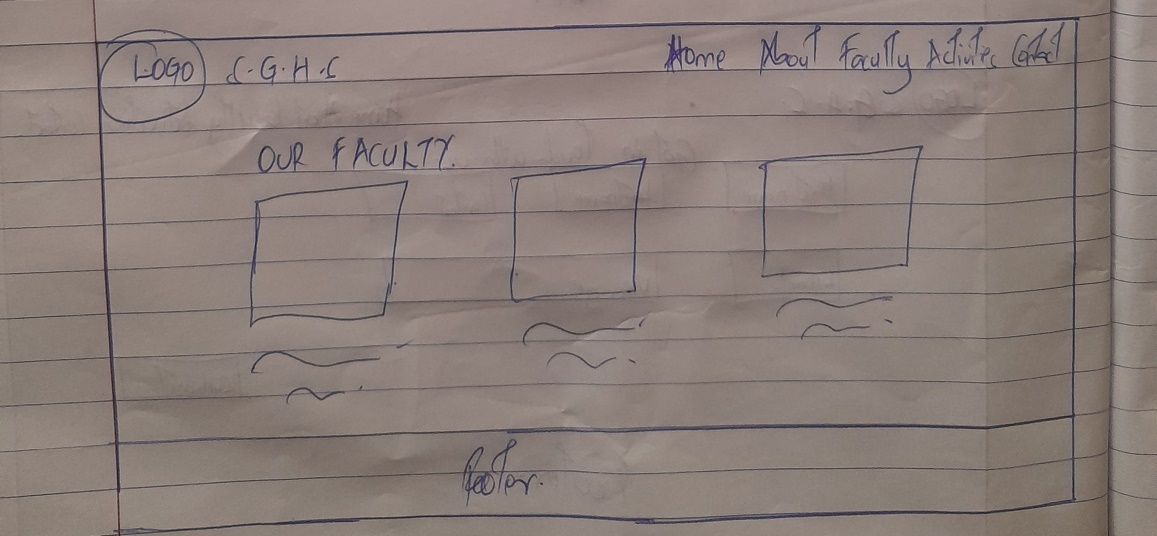 LOGO S.G.H.S Home About Faculty Activites Contact
OUR FACULTY.
footer.